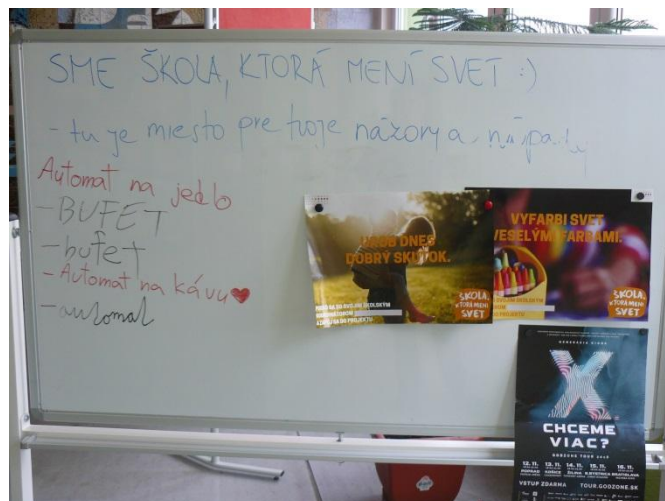 SME ŠKOLA, KTORÁ MENÍ SVET :)
- tu je miesto pre tvoje názory a nápady
Automat na jedlo
- BUFET
- bufet
- Automat na kávu
- automat
DNES
DOBRÝ SKUTOK.
ŠKOLA,
KTORÁ MENÍ
SVET
VYFARBI SVET
VESELÝMI FARBAMI.
ŠKOLA,
KTORÁ MENÍ
SVET
X
CHCEME
VIAC?
GODZONE TOUR
12. 11. 13. 11. 14. 11. 15. 11. 16. 11.
POPRAD KOŠICE ŽILINA B.BYSTRICA BRATISLAVA
VSTUP ZDARMA TOUR.GODZONE.SK